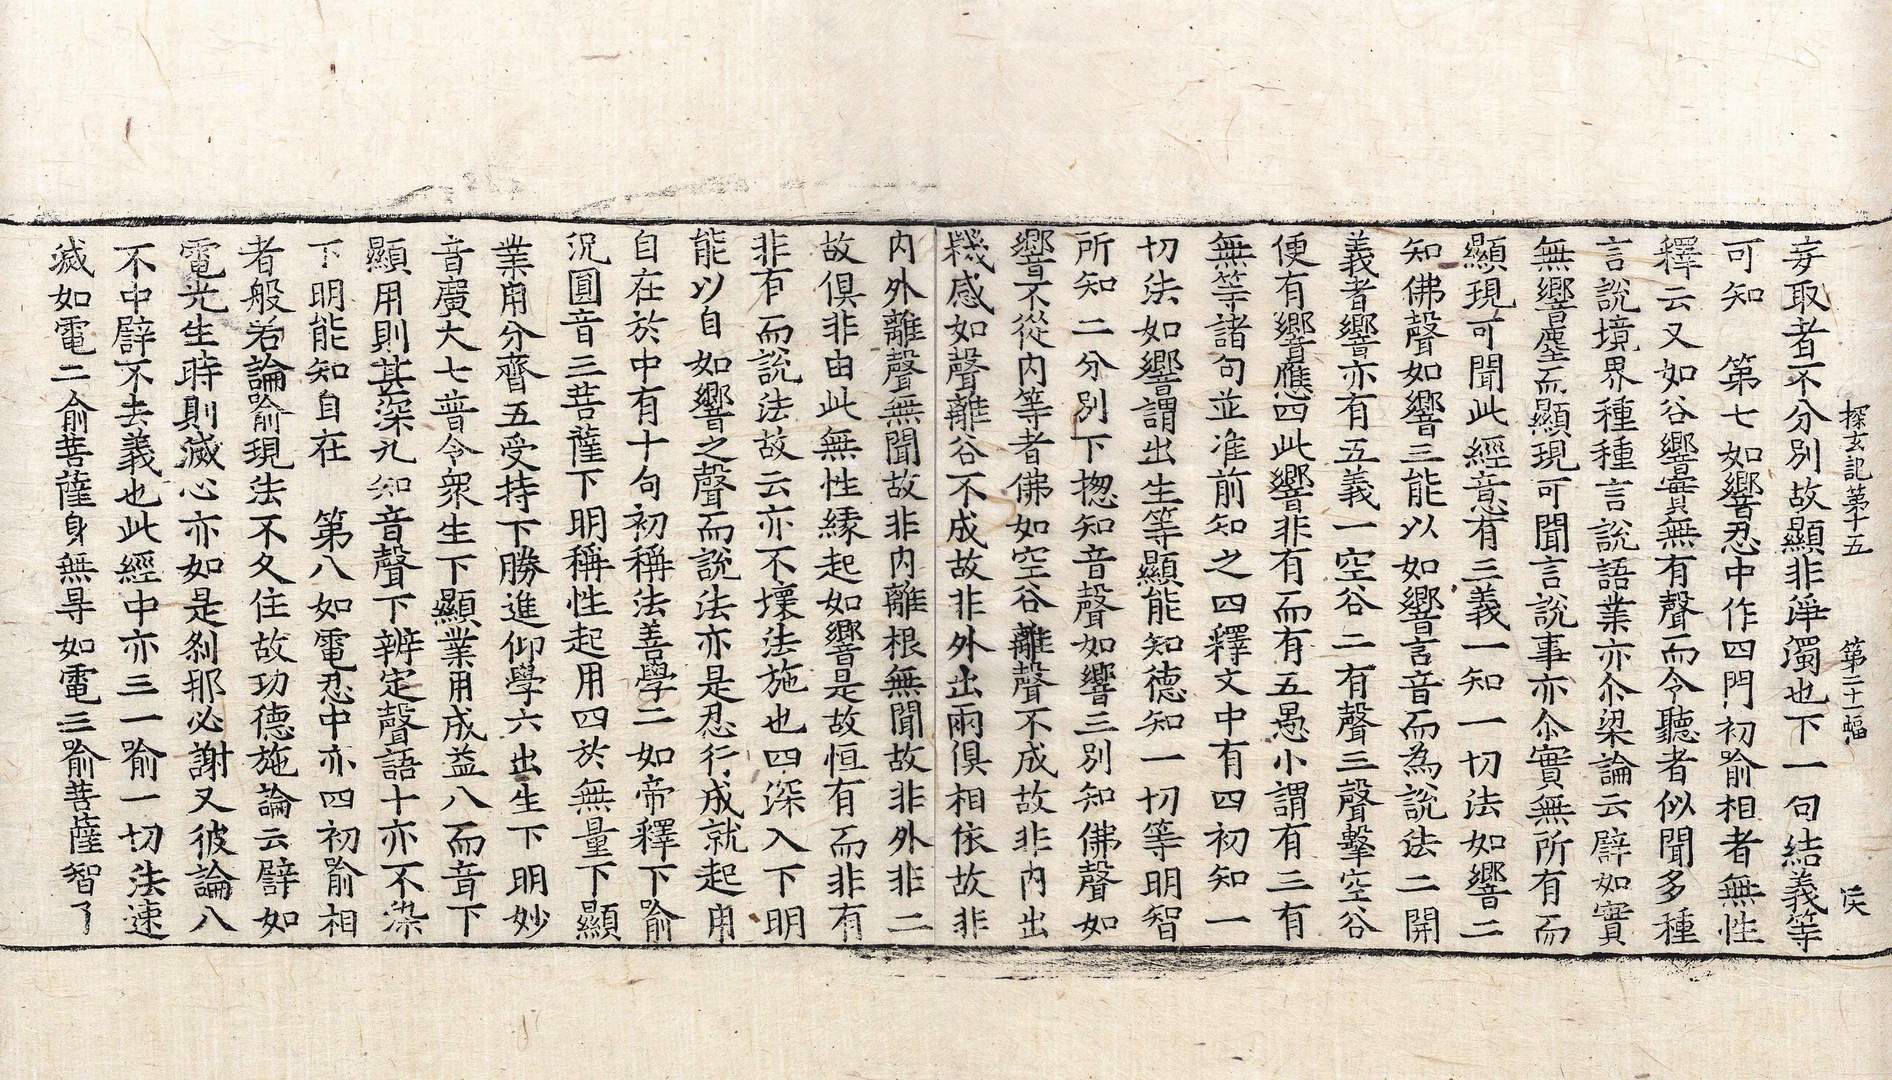 探玄記第十五 第二十一幅 俟
妄取者不分別故顯非淨濁也下一句結義等
可知 第七如響忍中作四門初喻相者無性
釋云又如谷響實無有聲而令聽者似聞多種
言說境界種種言說語業亦尒梁論云譬如實
無響塵而顯現可聞言說事亦尒實無所有而
顯現可聞此經意有三義一知一切法如響二
知佛聲如響三能以如響言音而為說法二開
義者響亦有五義一空谷二有聲三聲擊空谷
便有響應四此響非有而有五愚小謂有三有
無等諸句並准前知之四釋文中有四初知一
切法如響謂出生等顯能知德知一切等明智
所知二分別下揔知音聲如響三別知佛聲如
響不從內等者佛如空谷離聲不成故非內出
機感如聲離谷不成故非外出兩俱相依故非
內外離聲無聞故非內離根無聞故非外非二
故俱非由此無性緣起如響是故恒有而非有
非有而說法故云亦不壞法施也四深入下明
能以自如響之聲而說法亦是忍行成就起用
自在於中有十句初稱法善學二如帝釋下喻
況圓音三菩薩下明稱性起用四於無量下顯
業用分齊五受持下勝進仰學六出生下明妙
音廣大七普令衆生下顯業用成益八而音下
顯用則甚深九知音聲下辨定聲語十亦不染
下明能知自在 第八如電忍中亦四初喻相
者般若論喻現法不久住故功德施論云譬如
電光生時則滅心亦如是刹那必謝又彼論八
不中譬不去義也此經中亦三一喻一切法速
滅如電二喻菩薩身無㝵如電三喻菩薩智了